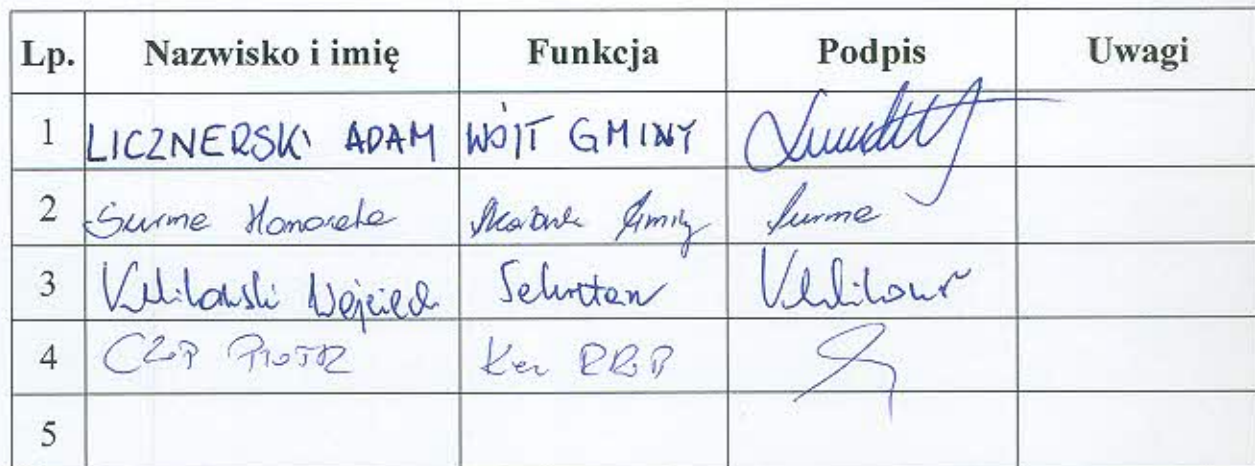 Lp. Nazwisko i imię Funkcja Podpis Uwagi
1 LICZNERSKI ADAM WÓJT GMINY
2 Surma Honorata Skarbnik Gminy Surma
3 Wojciech Sekretarz
4 CZOP PIOTR Kier
5